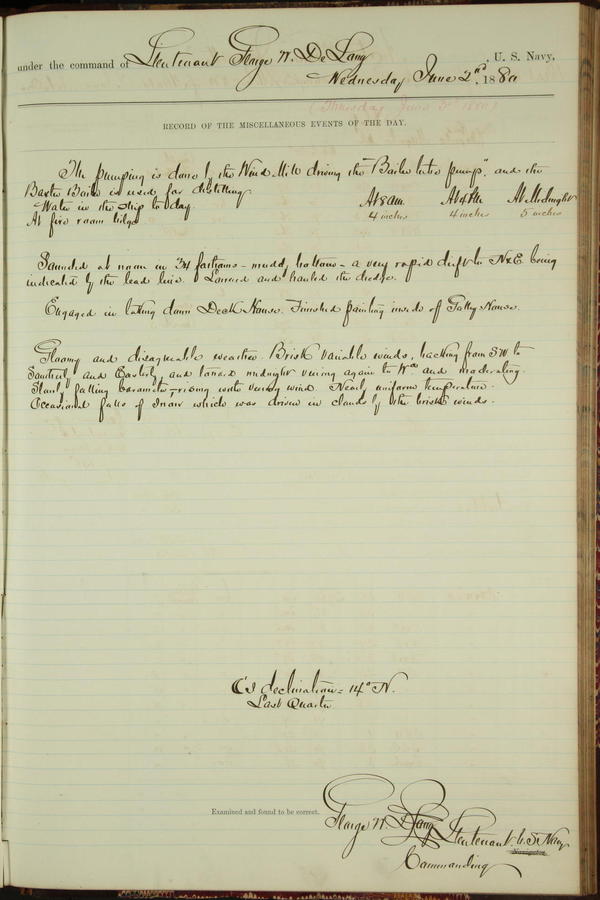 under the command of Lieutenant George W. De Long, U. S. Navy,
Wednesday June 2nd, 1880
RECORD OF THE MISCELLANEOUS EVENTS OF THE DAY.
The pumping is done by the Wind Mill driving the "Bailer Intro pump", and the
Baxter Boiler is used for distilling
Water in the ship to day At 8 am. At 4 PM At Midnight
At fire room bilge 4 inches 4 inches 5 inches
Sounded at noon in 34 fathoms - muddy bottom - a very rapid drift to N & E being
indicated by the lead line. Lowered and hauled the dredge.
Engaged in taking down Deck House. Finished painting inside of Galley House.
Gloomy and disagreeable weather. Brisk variable winds, backing from SW to
Southerly and Easterly and toward midnight veering again to and moderating.
Slowly falling barometer rising with veering wind. Nearly uniform temperature.
Occasional falls of snow which was driven in clouds by the brisk winds.
☾'s declination = 14° N.
Last Quarter
Examined and found to be correct.
George W. De Long Lieutenant U.S. Navy
Navigator
Commanding